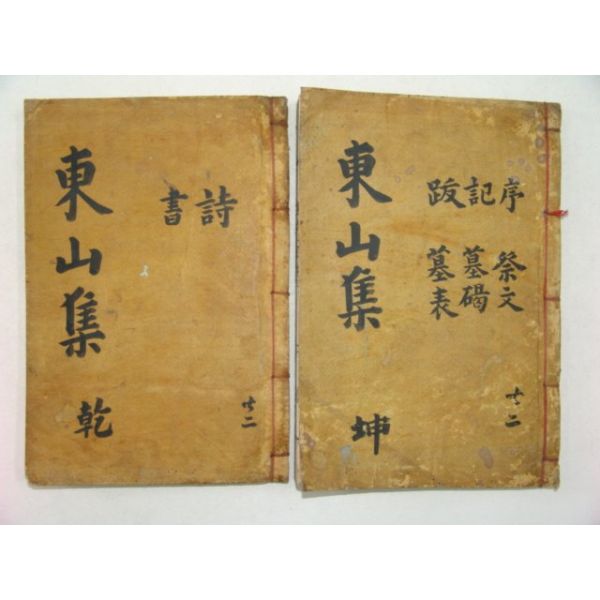 東山集 乾
詩
書
共二
東山集 坤
序 祭文
記 墓碣
跋 墓表
共二